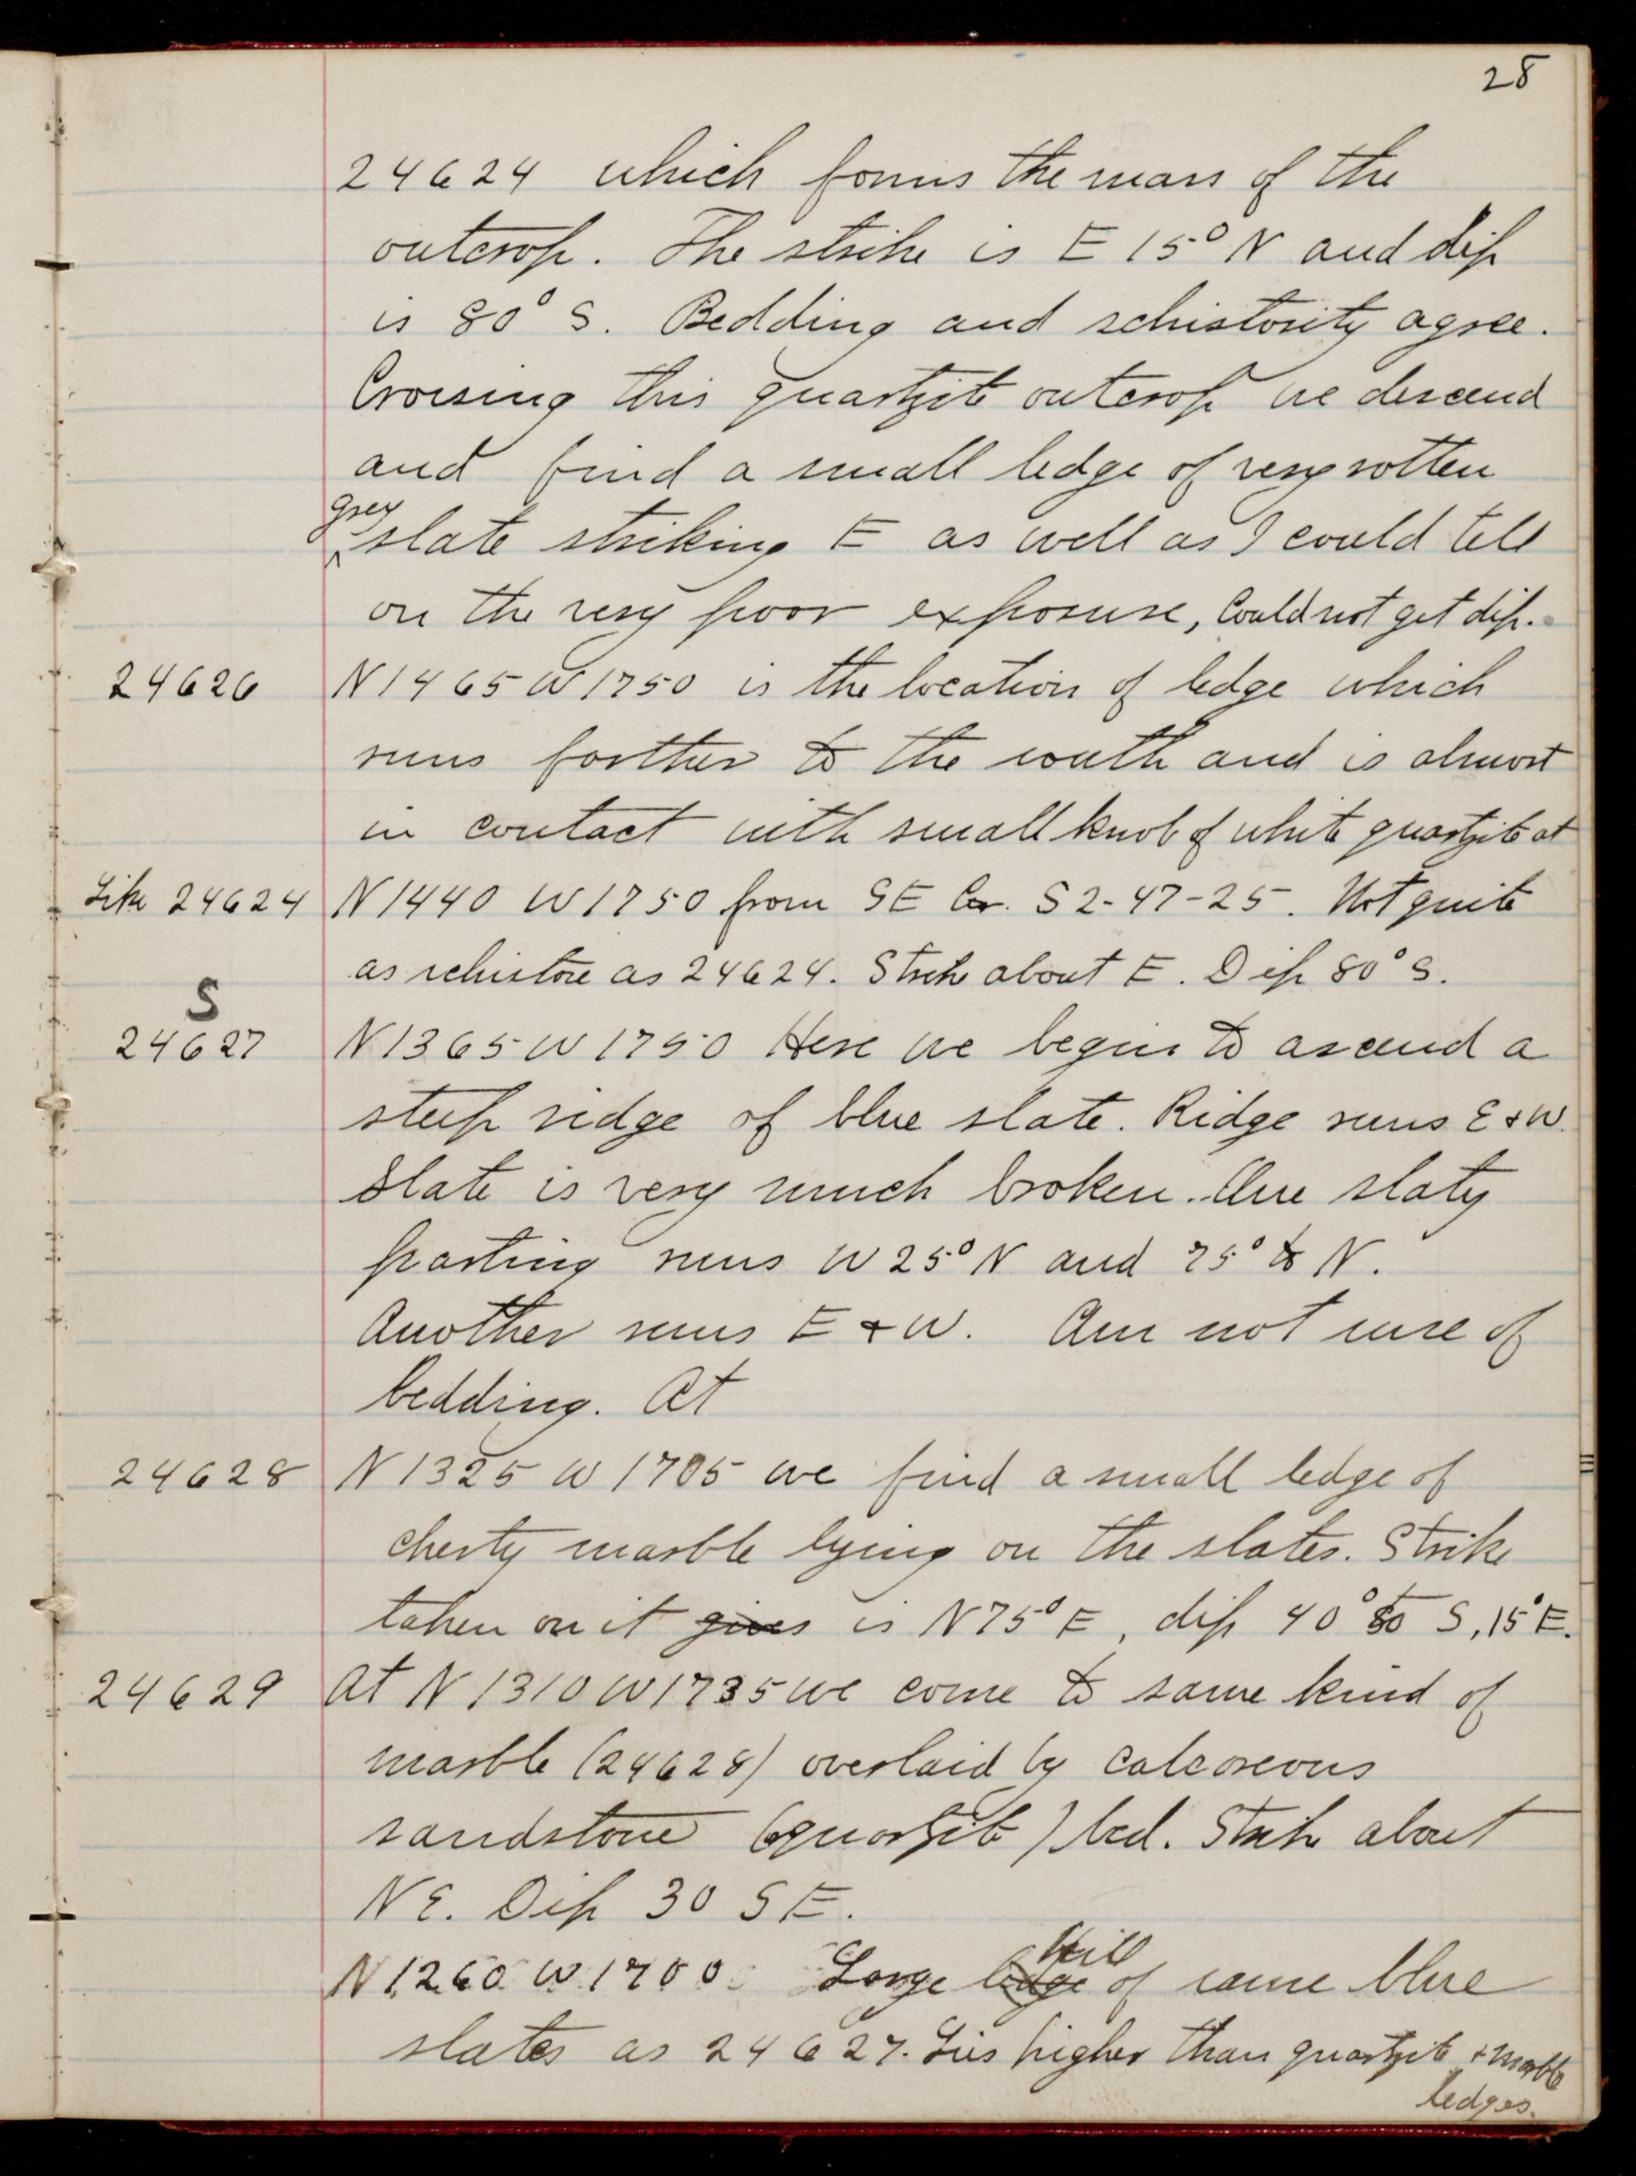 28
24624 which forms the mass of the
outcrop. The strike is E 15° N and dip
is 80° S. Bedding and schistosity agree.
Crossing this quartzite outcrop we descend
and find a small ledge of very rotten
grey
slate striking E as well as I could tell
on the very poor exposure, Could not get dip.
24626 N1465 W1750 is the location of ledge which
runs farther to the south and is almost
in contact with small knob of white quartzite at
Like 24624 N1440 W1750 from SE Cor. S2-47-25. Not quite
as schistose as 24624. Strike about E. Dip 80° S.
S
24627 N1365 W1750 Here we begin to ascend a
steep ridge of blue slate. Ridge runs E & W.
Slate is very much broken. One slaty
parting runs W 25° N and 75° to N.
Another runs E & W. Am not sure of
bedding. At
24628 N1325 W1705 we find a small ledge of
cherty marble lying on the slates. Strike
taken on it gives is N75° E, dip 40° to S, 15° E.
24629 At N1310 W1735 we come to same kind of
marble (24628) overlaid by calcareous
sandstone (quartzite) bed. Strike about
NE. Dip 30 SE.
Hill
N1260 W1700. Large ledge of same blue
slates as 24627. Lies higher than quartzite & marble
ledges.